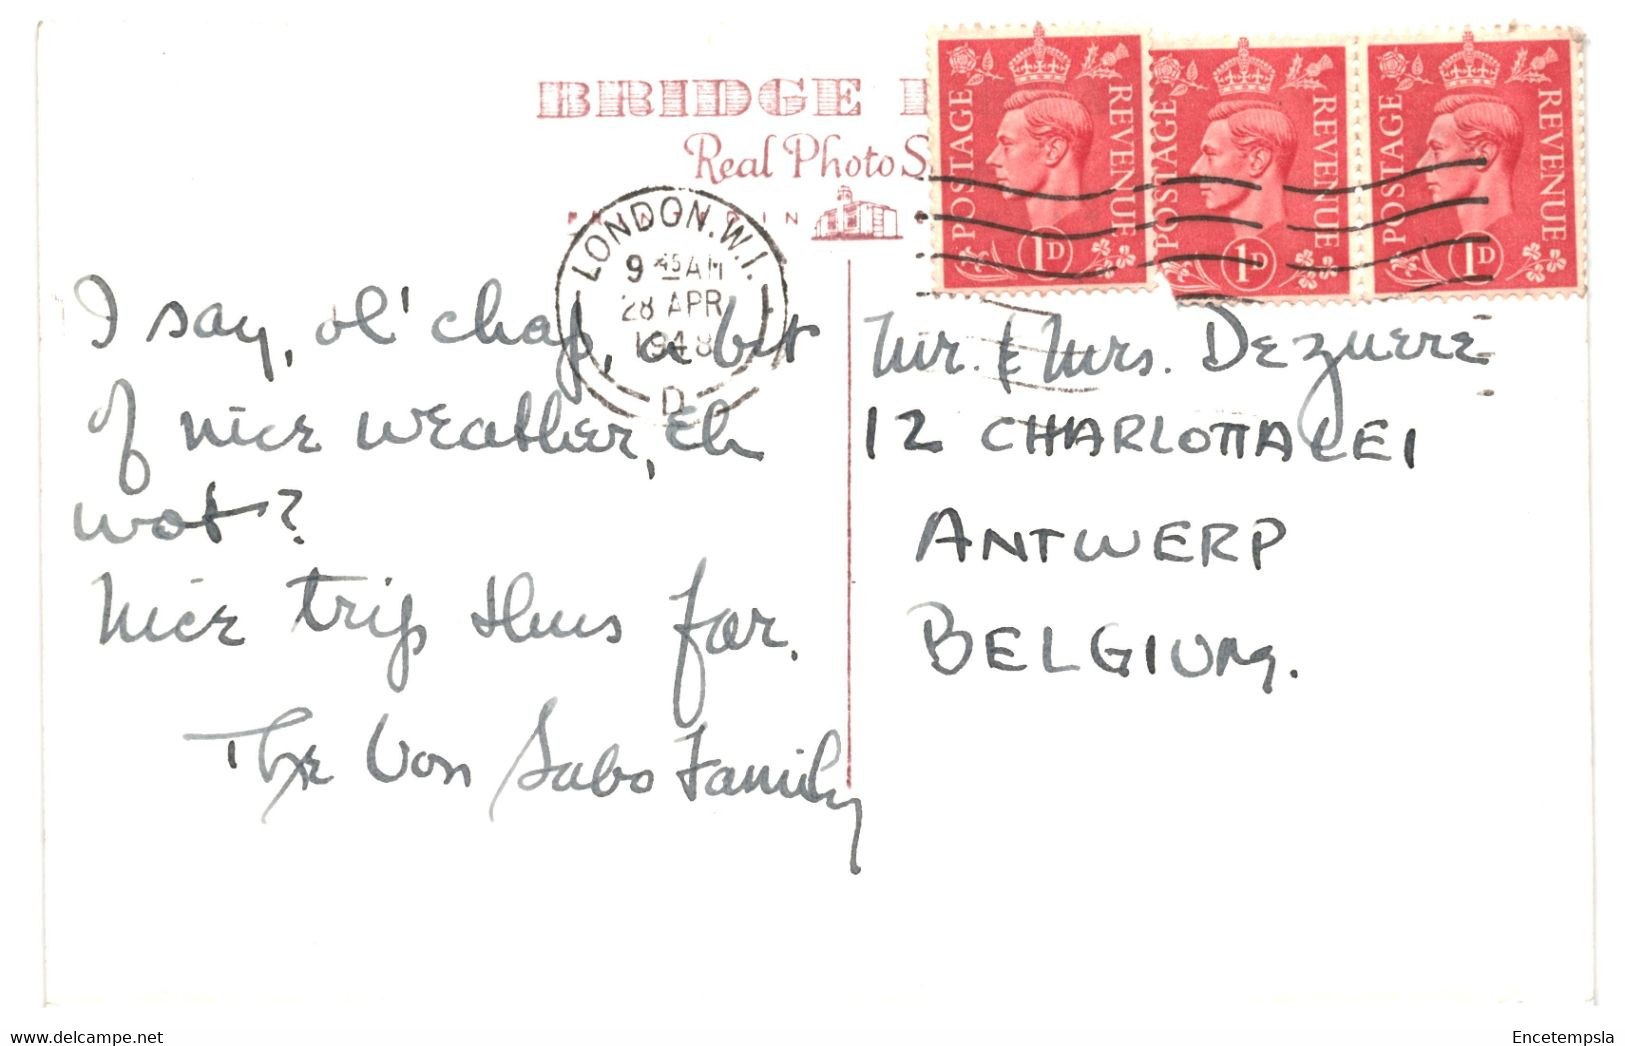 BRIDGE
Real Photo S
LONDON. W.1.
9 45 AM
28 APR
1948
D
POSTAGE REVENUE
1D
POSTAGE REVENUE
1D
POSTAGE REVENUE
1D
I say, ol' chap, a bit
of nice weather, eh
wot?
Nice trip thus far.
The Von Sabo Family
Mr. & Mrs. Dezuere
12 CHARLOTTALEI
ANTWERP
BELGIUM.
delcampe.net
Encetempsla